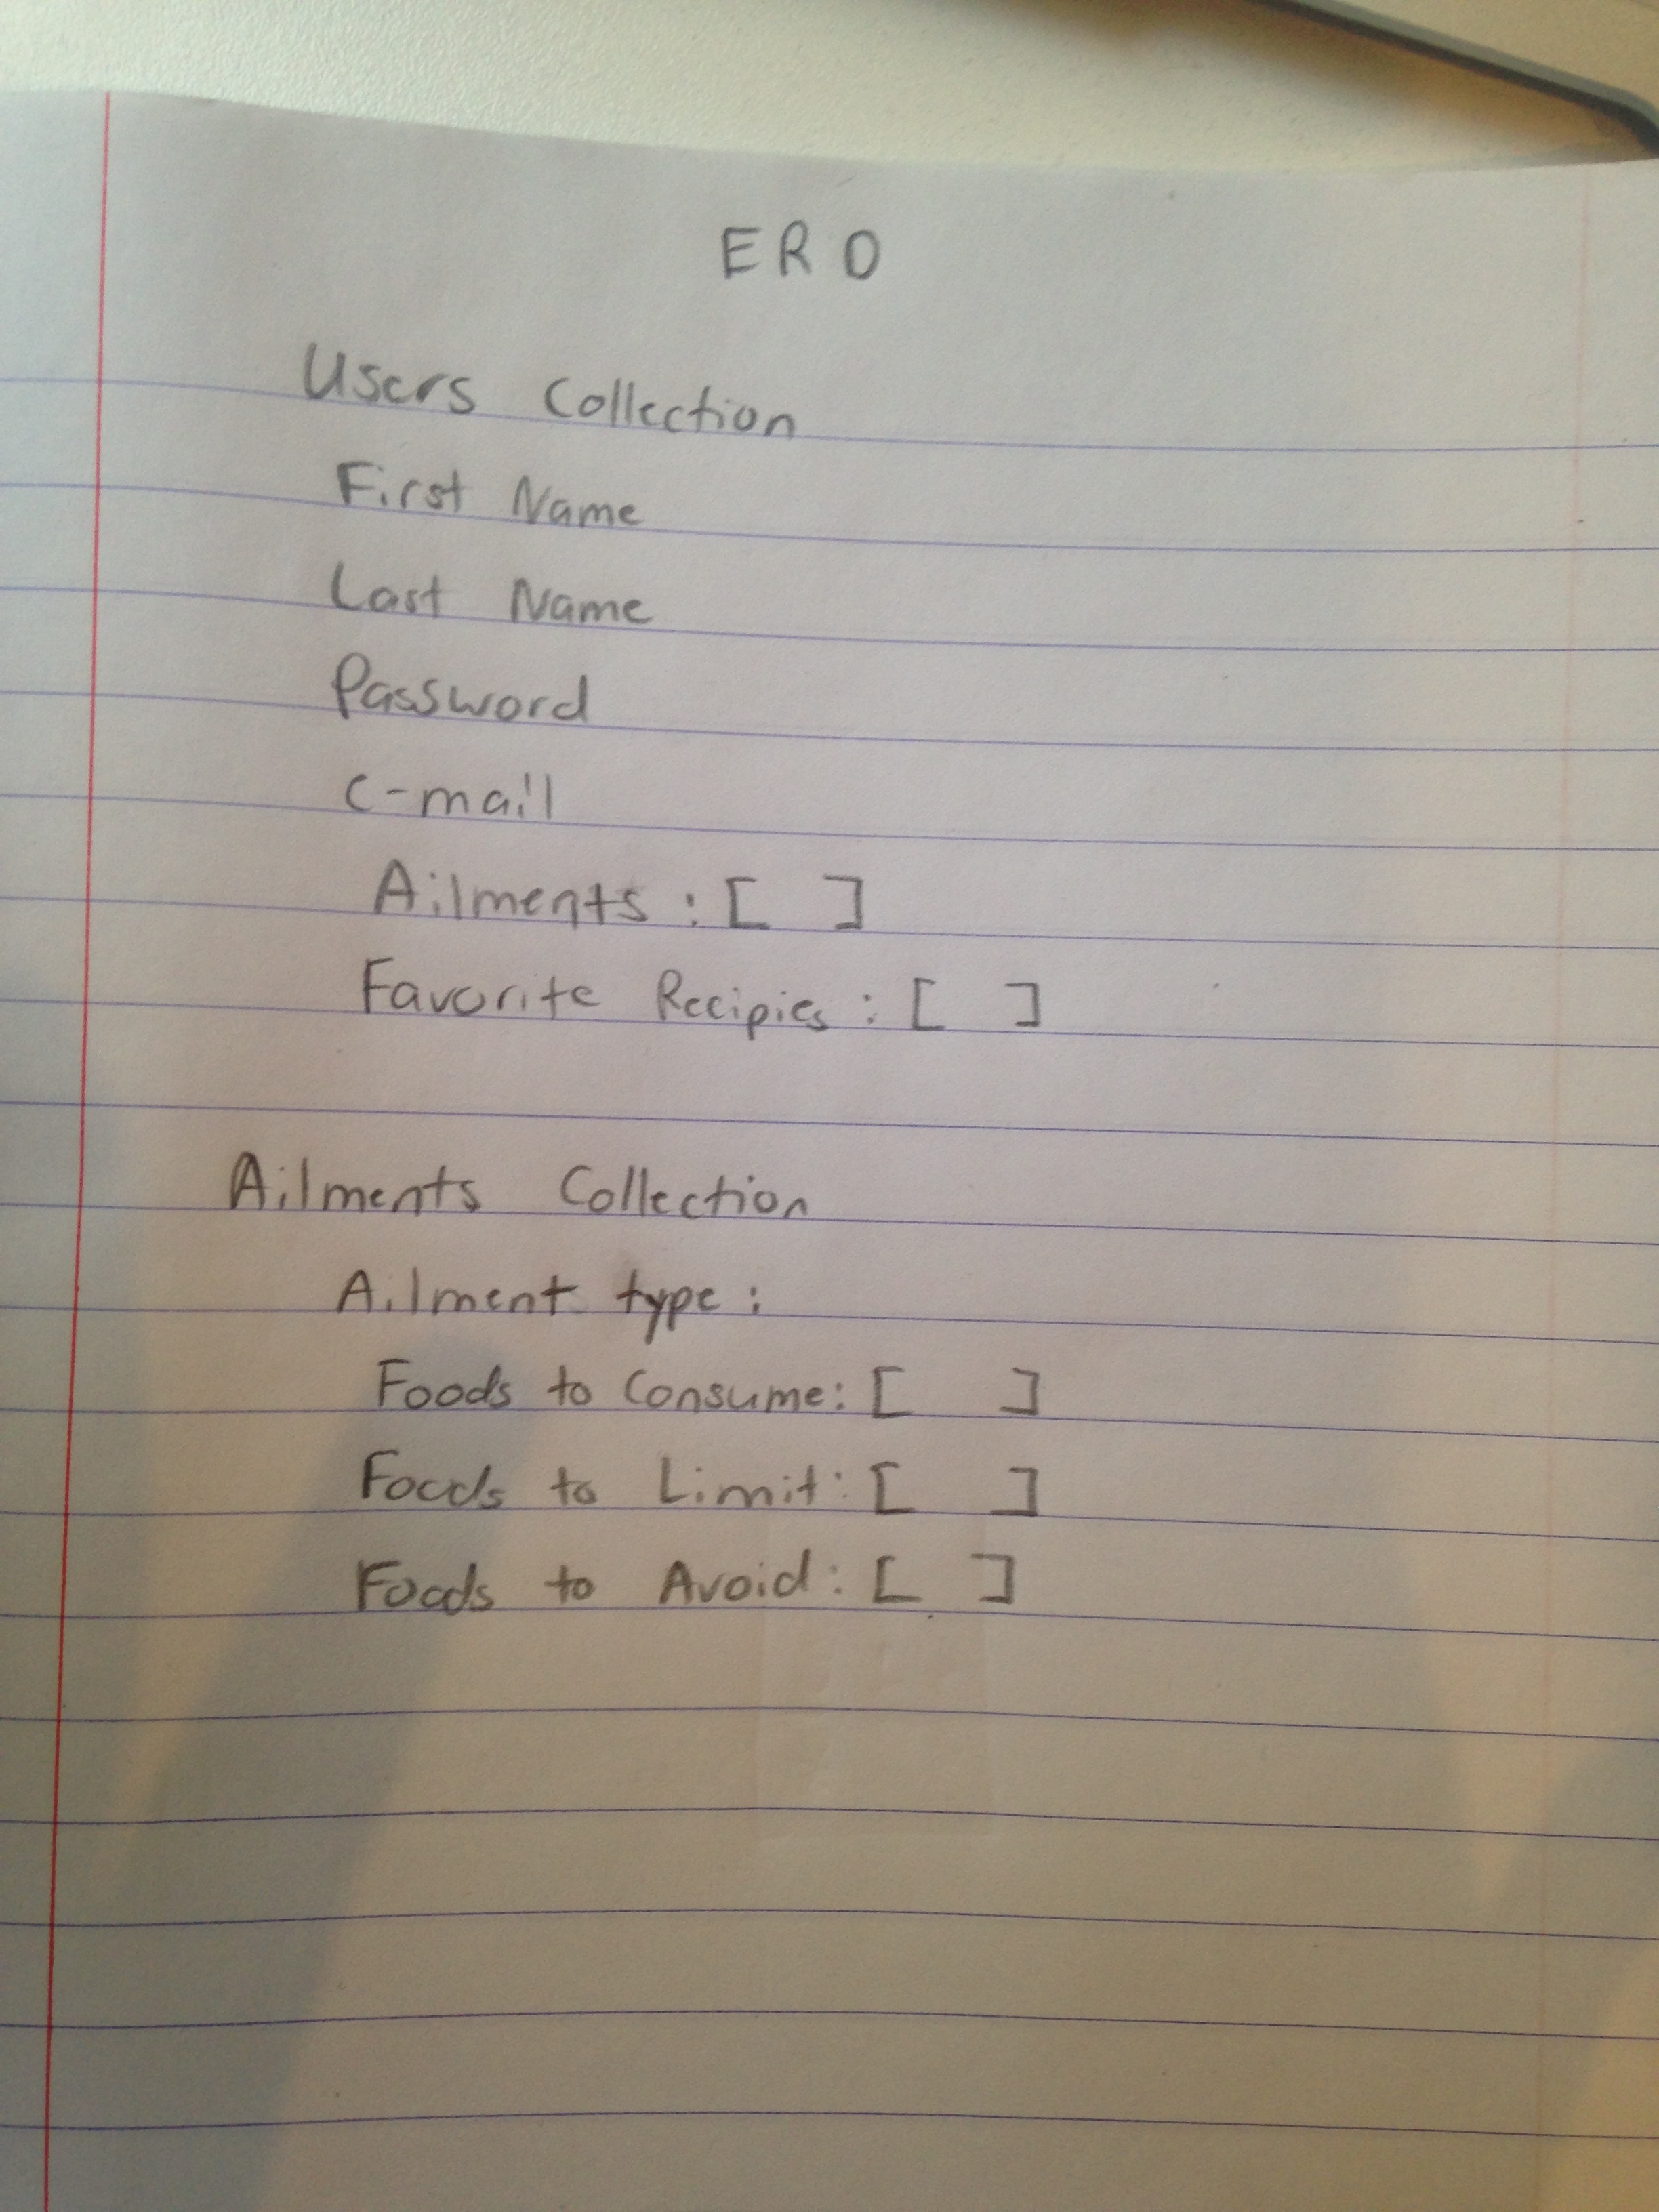 ERD
Users Collection
First Name
Last Name
Password
e-mail
Ailments : [ ]
Favorite Recipies : [ ]
Ailments Collection
Ailment type :
Foods to Consume: [ ]
Foods to Limit: [ ]
Foods to Avoid: [ ]